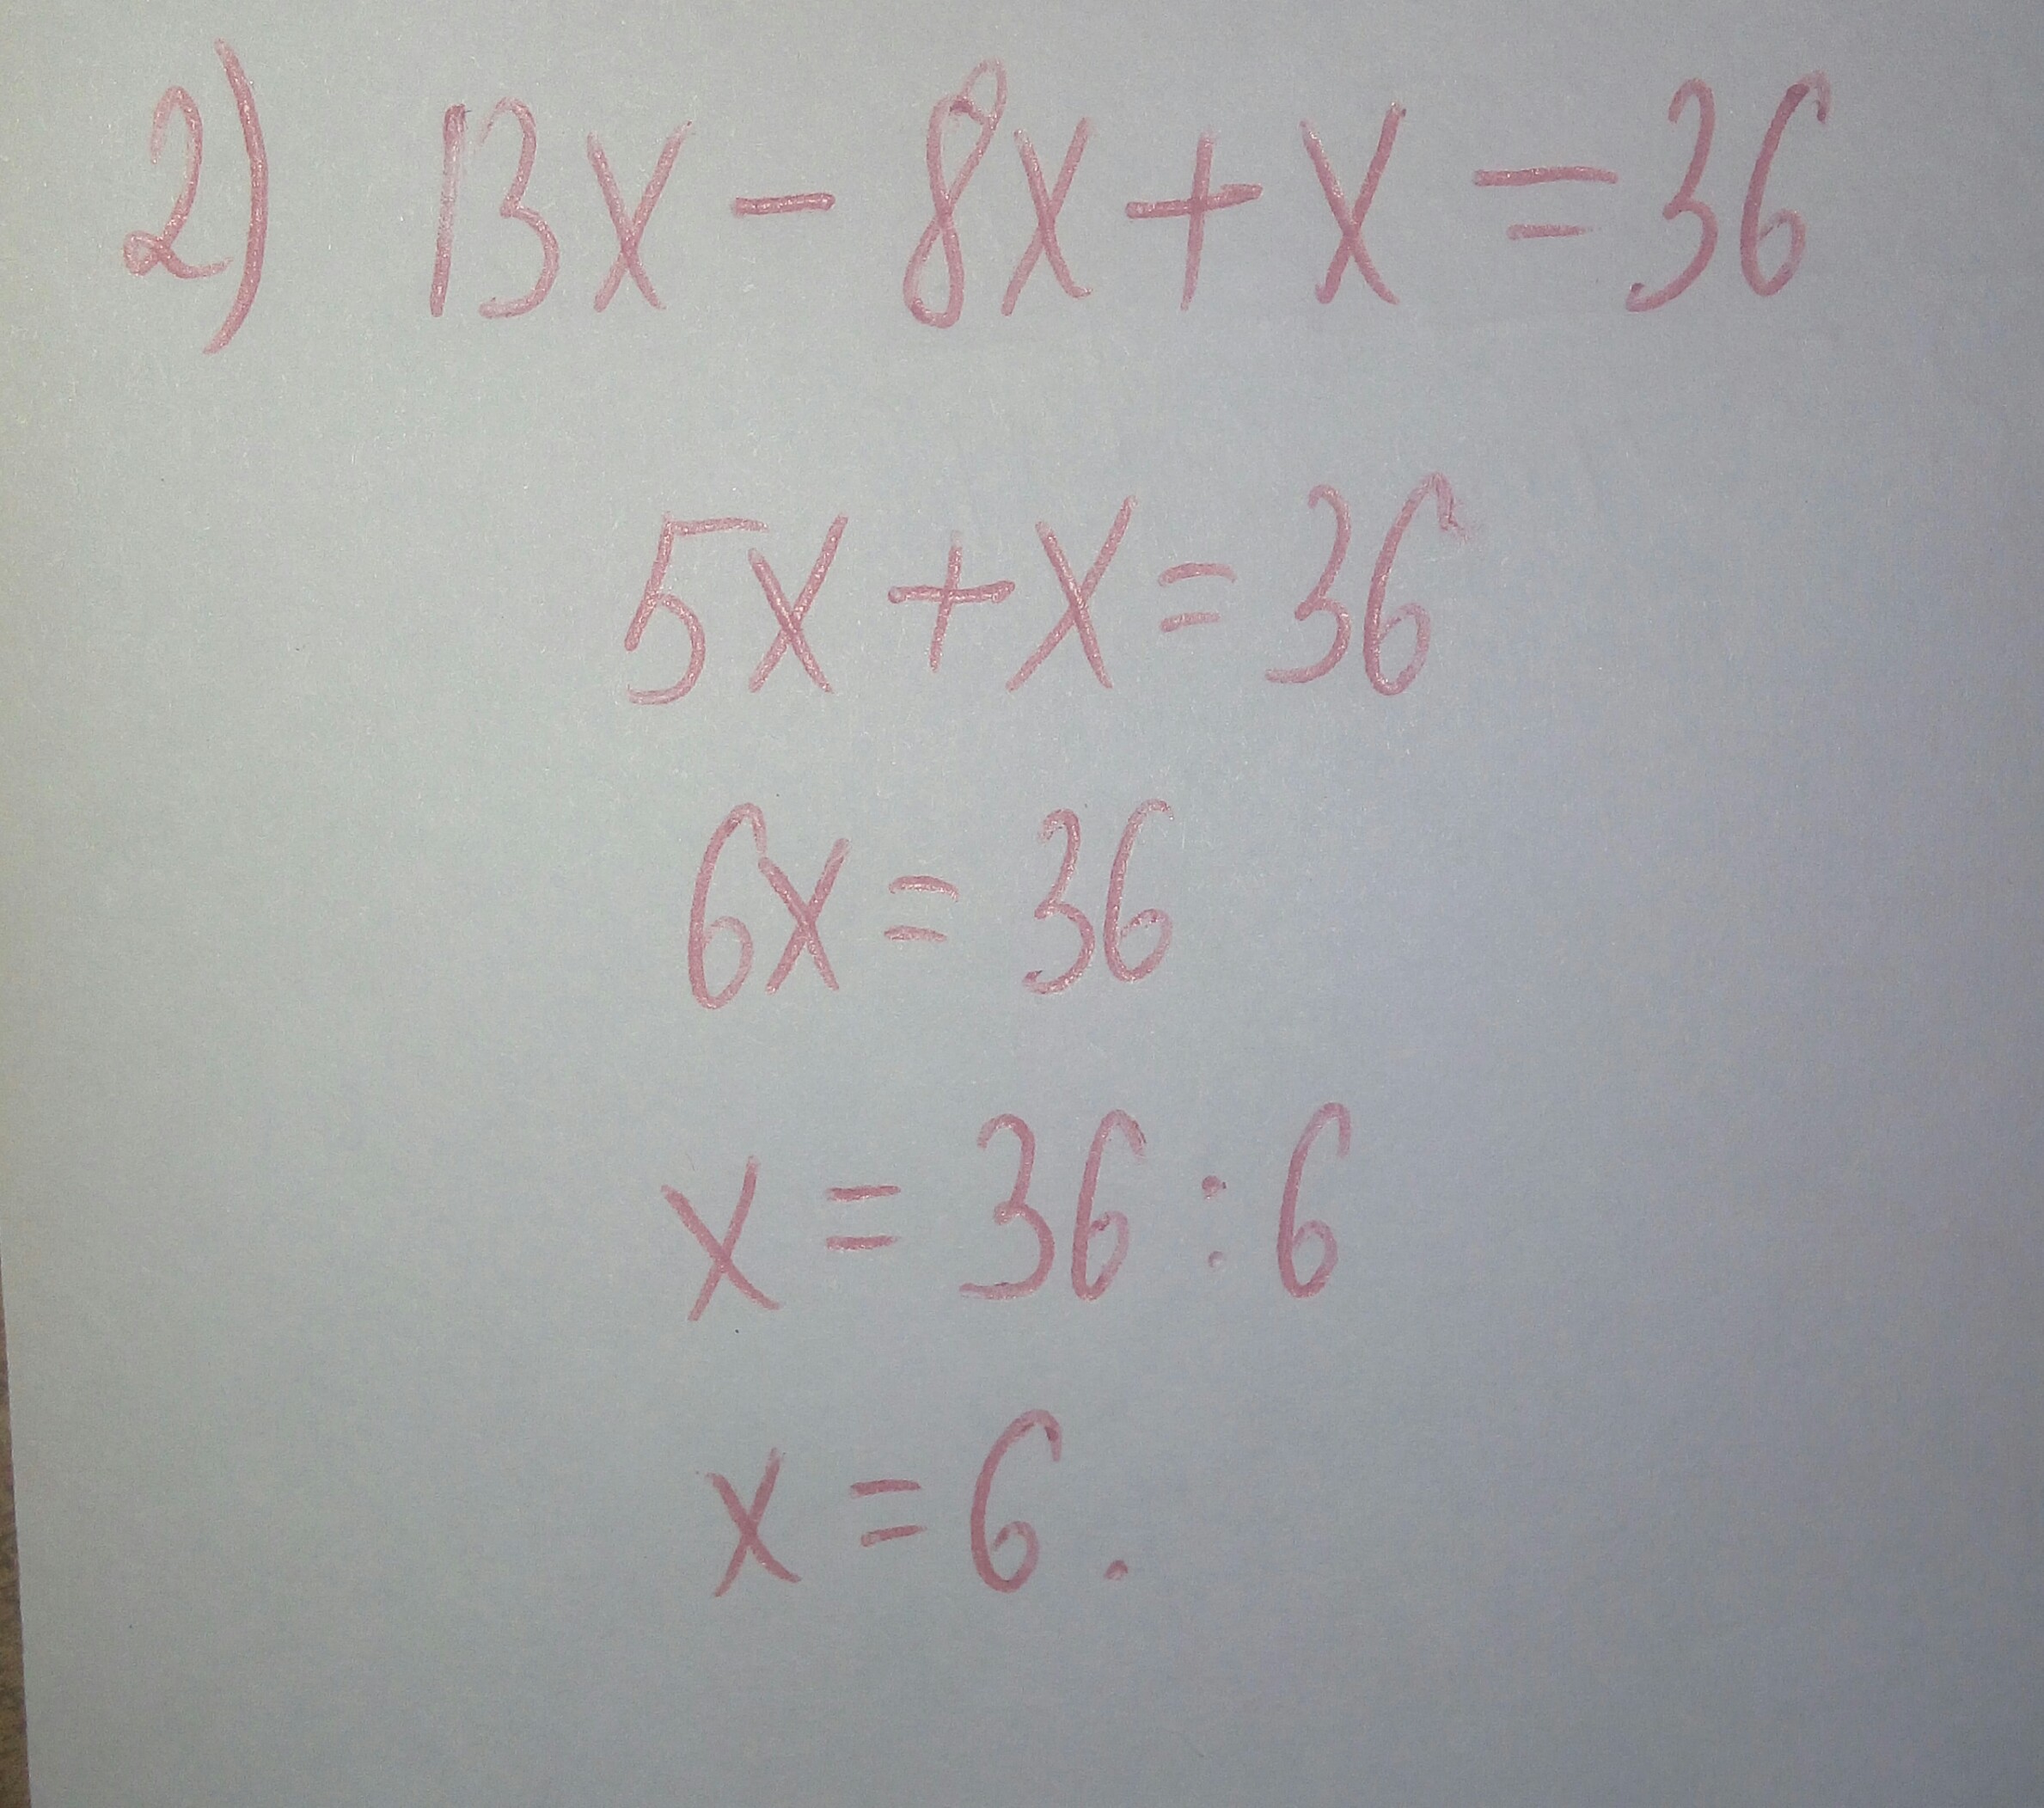 2) 13x - 8x + x = 36
5x + x = 36
6x = 36
x = 36 : 6
x = 6 .